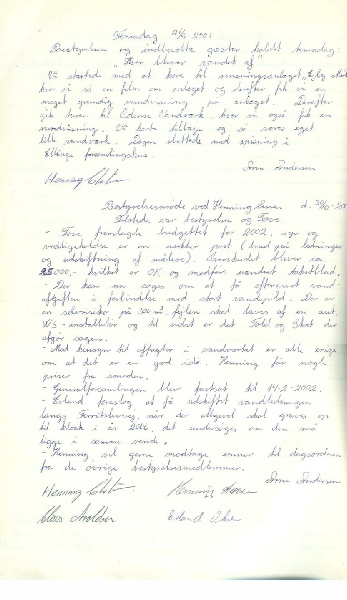 Temadag 2001
Bestyrelsen og indbudte gæster holdt temadag:
"Hvor bliver vandet af"
Vi startede med at køre til rensningsanlæget
hvor vi så en film om anlæget og derefter fik vi en
meget grundig rundvisning på anlæget. Derefter
gik turen til Odense Vandværk, hvor vi også fik en
rundvisning. Vi kørte tilbage og så vores eget
lille vandværk. Dagen sluttede med spisning i
forsamlingshus.
Arne Andersen
Henning
Bestyrelsesmøde ved Henning d.
Tilstede var bestyrelsen og Tove
- Tove fremlagde budgettet for 2002,
vedligeholdelse er en usikker post (brud på ledninger
og udskiftning af målere). Overskudet bliver ca.
25.000,- hvilket er OK og medfør uændret takstblad.
- Der kan nu søges om at få eftergivet vand-
afgiften i forbindelse med stort vandspild. Der er
en selvrisiko på 300 m3, fejlen skal laves af en aut.
VVS-installatør og til sidst er det Told og Skat der
afgør sagen.
- Med hensyn til affugter i vandværket er alle enige
om at det er en god ide. Henning får nogle
priser fra smeden.
- Generalforsamlingen blev fastsat til 14-2-2002.
- Erland foreslog at få udskiftet vandledningen
langs, når der alligevel skal graves op
til kloak i år 2006, det undersøges om den må
ligge i samme rende.
- Henning vil gerne modtage emner til dagsordnen
fra de øvrige bestyrelsesmedlemmer.
Arne Andersen
Henning
Henning
Erland